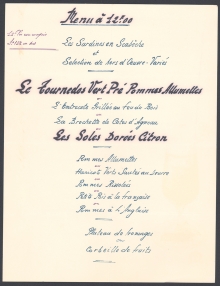 Menu à 12.00
Les Sardines en Cassolette
et
Selection de hors d'œuvre Variés
Le Tournedos Vert Pré Pommes Allumettes
L'Entrecôte Grillée au feu de Bois
ou
La Brochette de Côtes d'Agneau
ou
Les Soles Dorées Citron
Pommes Allumettes
ou
Haricots Verts Sautés au beurre
ou
Pommes Rissolées
ou
Petits Pois à la française
ou
Pommes à l'Anglaise
Plateau de fromages
ou
Corbeille de fruits